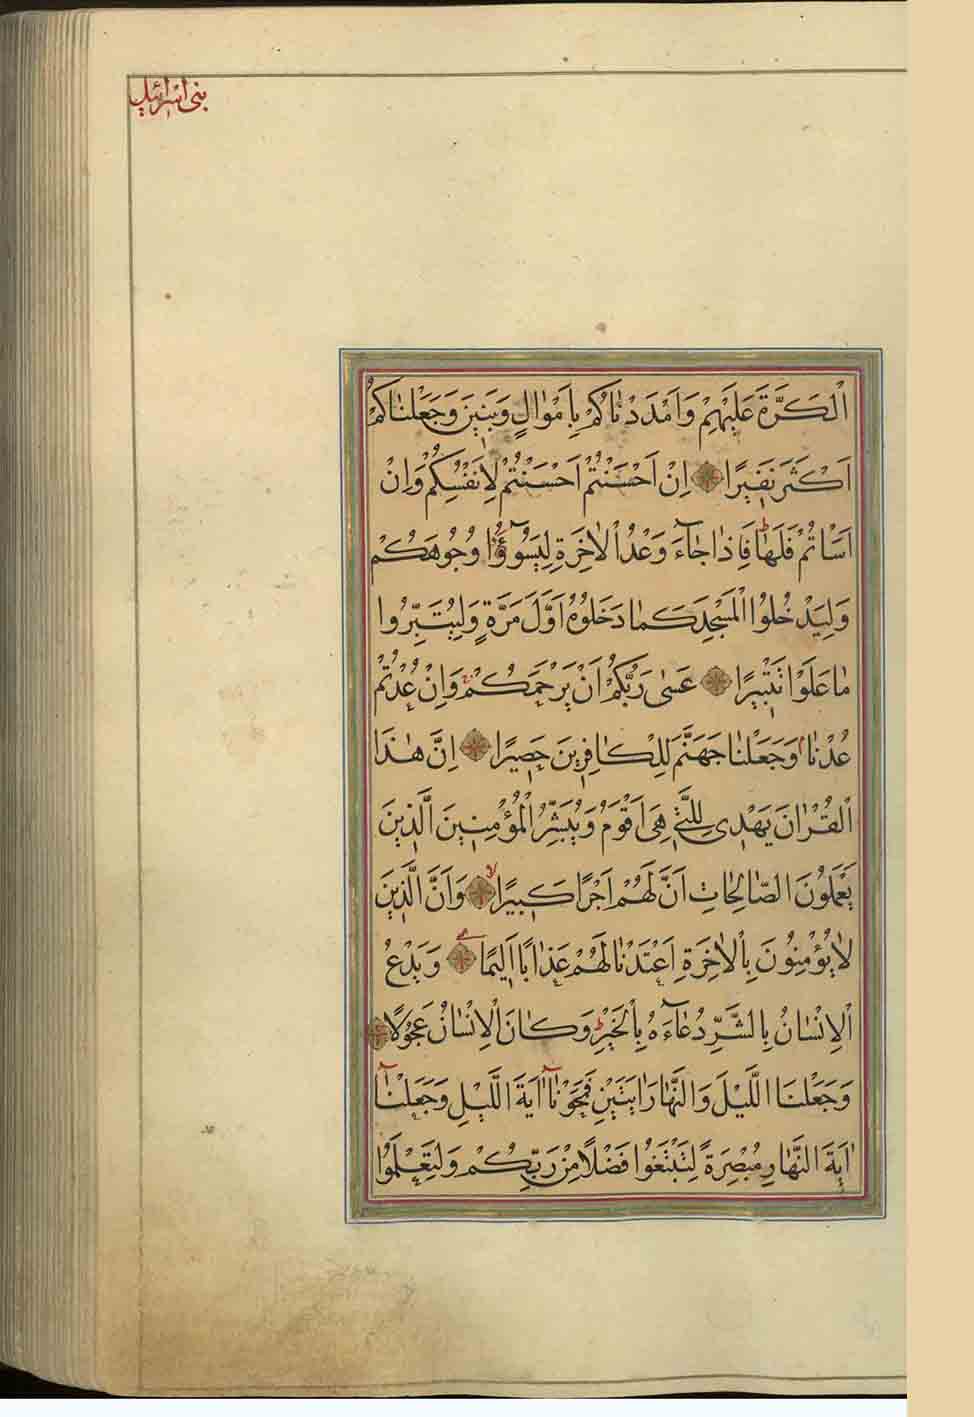 بنی اسرائیل
الْكَرَّةَ عَلَيْهِمْ وَاَمْدَدْنَاكُمْ بِاَمْوَالٍ وَبَنِينَ وَجَعَلْنَاكُمْ
اَكْثَرَ نَفِيرًا اِنْ اَحْسَنْتُمْ اَحْسَنْتُمْ لِاَنْفُسِكُمْ وَاِنْ
اَسَاْتُمْ فَلَهَا ط فَاِذَا جَاۤءَ وَعْدُ الْاٰخِرَةِ لِيَسُوۤؤُا وُجُوهَكُمْ
وَلِيَدْخُلُوا الْمَسْجِدَ كَمَا دَخَلُوهُ اَوَّلَ مَرَّةٍ وَلِيُتَبِّرُوا
مَا عَلَوْا تَتْبِيرًا عَسٰى رَبُّكُمْ اَنْ يَرْحَمَكُمْ وَاِنْ عُدْتُمْ
عُدْنَا وَجَعَلْنَا جَهَنَّمَ لِلْكَافِرِينَ حَصِيرًا اِنَّ هٰذَا
الْقُرْاٰنَ يَهْدِى لِلَّتِى هِىَ اَقْوَمُ وَيُبَشِّرُ الْمُؤْمِنِينَ الَّذِينَ
يَعْمَلُونَ الصَّالِحَاتِ اَنَّ لَهُمْ اَجْرًا كَبِيرًا لا وَاَنَّ الَّذِينَ
لَا يُؤْمِنُونَ بِالْاٰخِرَةِ اَعْتَدْنَا لَهُمْ عَذَابًا اَلِيمًا وَيَدْعُ
الْاِنْسَانُ بِالشَّرِّ دُعَاۤءَهُ بِالْخَيْرِ ط وَكَانَ الْاِنْسَانُ عَجُولًا
وَجَعَلْنَا اللَّيْلَ وَالنَّهَارَ اٰيَتَيْنِ فَمَحَوْنَاۤ اٰيَةَ اللَّيْلِ وَجَعَلْنَاۤ
اٰيَةَ النَّهَارِ مُبْصِرَةً لِتَبْتَغُوا فَضْلًا مِنْ رَبِّكُمْ وَلِتَعْلَمُوا